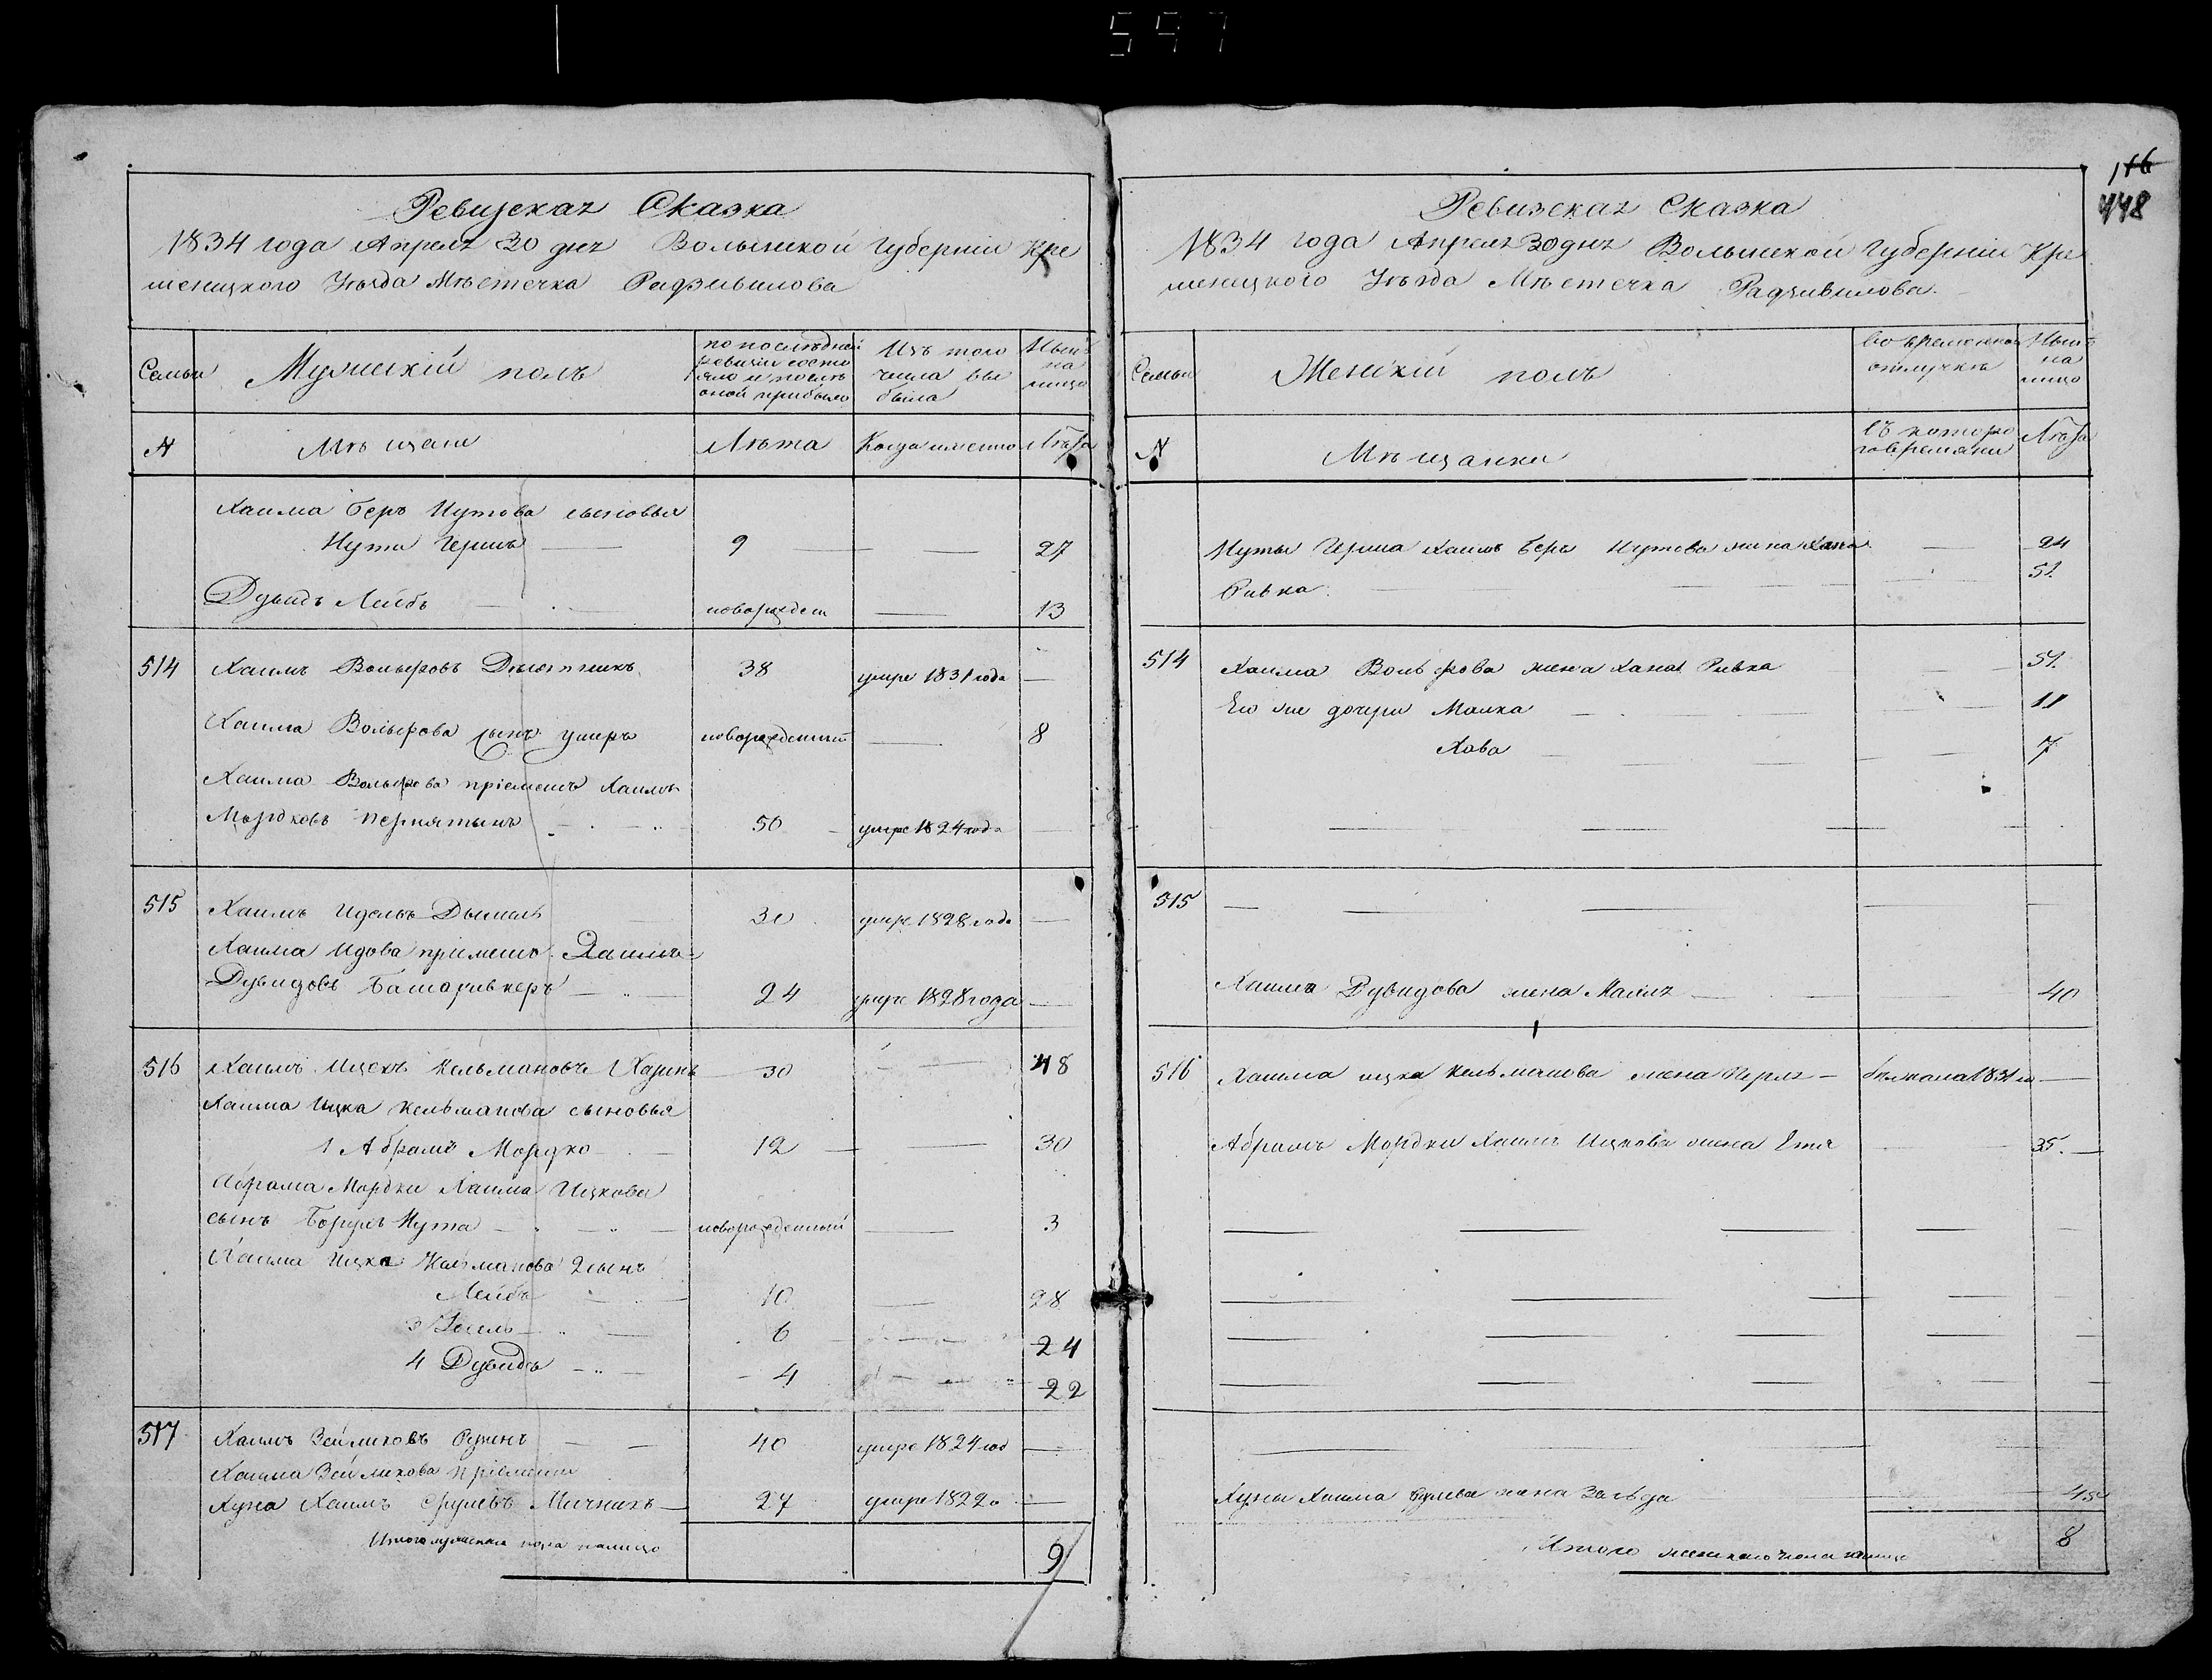 597
116
448
Ревизская Сказка
1834 года Апреля 30 дня Волынской Губерніи Кре
менецкого Уѣзда Мѣстечка Радзивилова
Семьи
Мужескій полъ
по послѣдней
ревизіи состо
яло и послѣ
оной прибыло
Изъ того
числа вы
была
Нынѣ
на
лицо
N
Мѣщане
Лѣта
Когда именно
Лѣта
Хаима Беръ Нутова сыновья
Нута Гершъ 9 27
Дувидъ Лейбъ новорожден 13
514 Хаимъ Вольфовъ 38 умре 1831 года
Хаима Вольфова сынъ новорожденный 8
Хаима Вольфова пріемышъ Хаимъ
Мордковъ 50 умре 1824 года
515 Хаимъ 30 умре 1828 года
Хаима Идова пріемышъ Хаимъ
Дувидовъ 24 умре 1828 года
516 Хаимъ Ицекъ Кельмановъ 30 48
Хаима Ицка Кельманова сыновья
1 Абрамъ Мордко 12 30
Абрама Мордки Хаима Ицкова
сынъ Борухъ Нута новорожденный 3
Хаима Ицка Кельманова 2 сынъ
Лейба 10 28
3 6 24
4 Дувидъ 4 22
517 Хаимъ Зейликовъ 40 умре 1824 год
Хаима Зейликова пріемышъ
Хуна Хаимъ 27 умре 1822
Итого мужеска пола налицо 9
Ревизская Сказка
1834 года Апреля 30 дня Волынской Губерніи Кре
менецкого Уѣзда Мѣстечка Радзивилова
Семьи
Женскій полъ
Во временной
отлучкѣ
Нынѣ
на
лицо
N
Мѣщанки
Съ которо
го времяни
Лѣта
Нуты Герша Хаимъ Бера Нутова жена Хана 24
Ривка 51
514 Хаима Вольфова жена Хана Ривка 51
Его же дочери Малка 11
Хава 7
515
Хаима Дувидова жена 40
516 Хаима Ицка Кельманова жена Перля 1831
Абрамъ Мордки Хаима Ицкова жена Етя 35
Хуны Хаима жена 45
Итого женского пола налицо 8